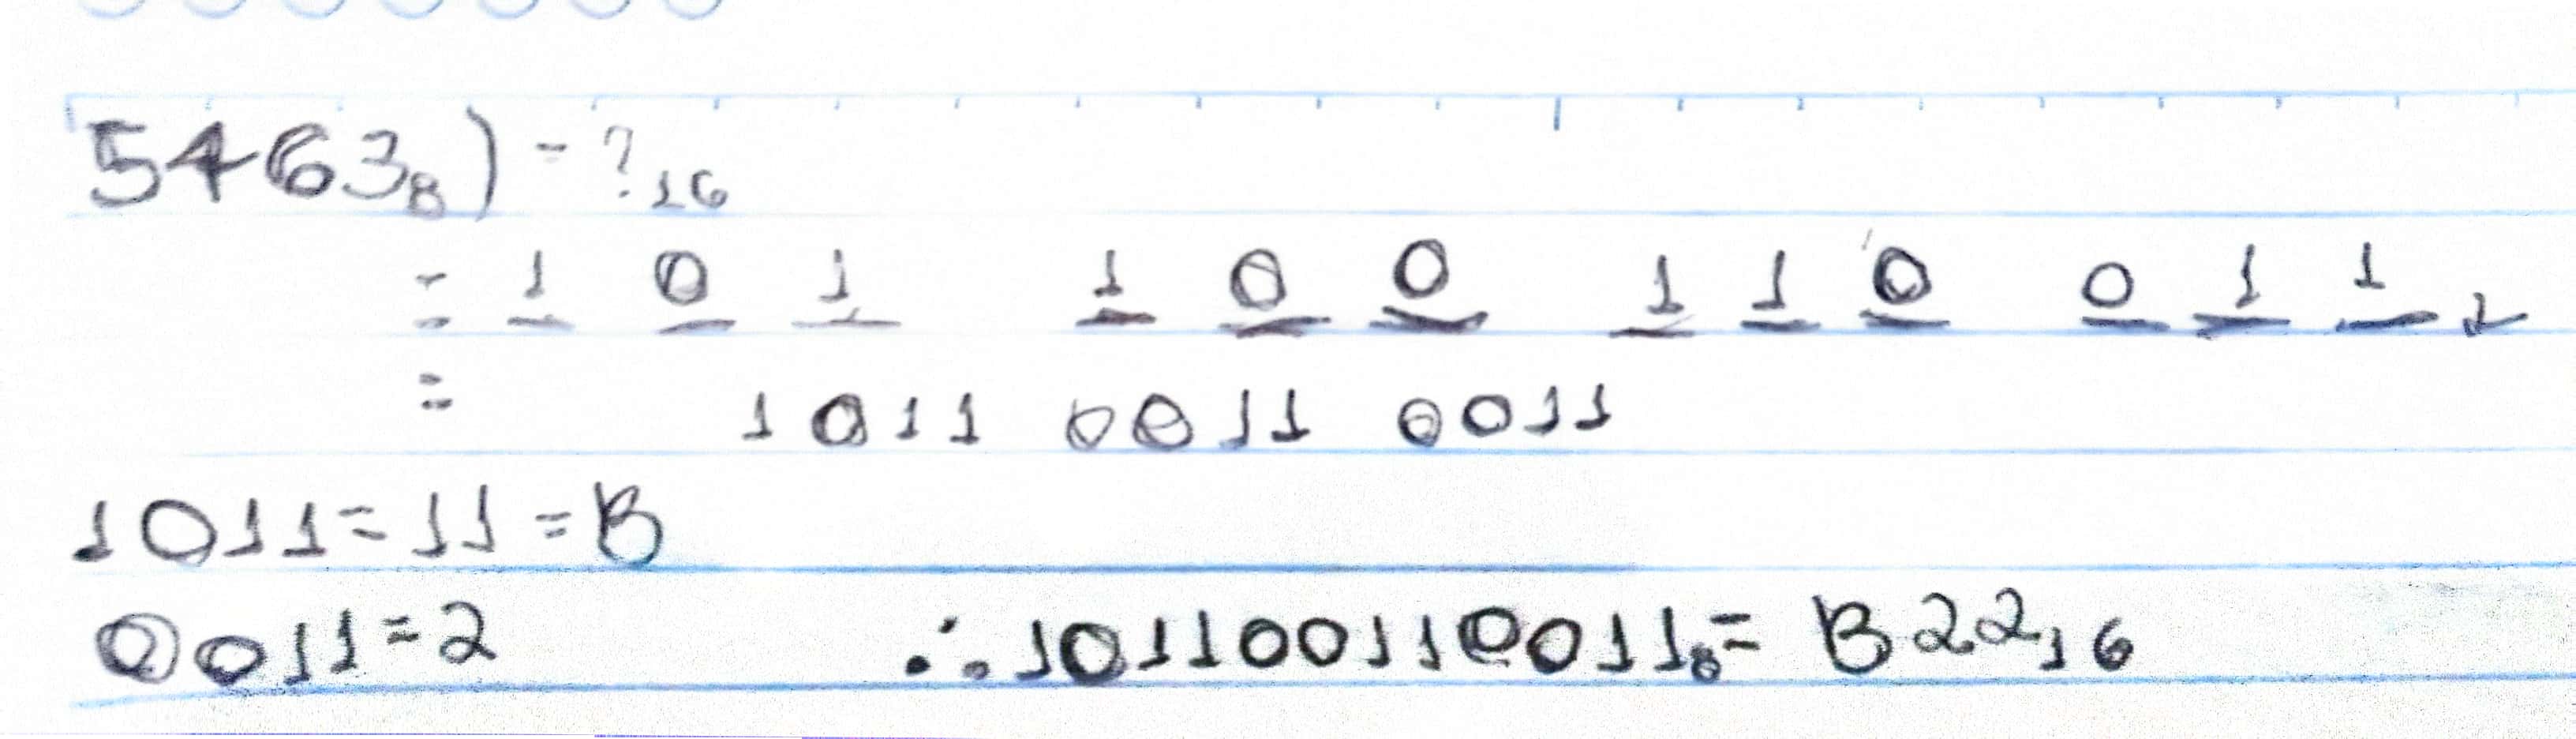 5463₈) = ?₁₆
= 1 0 1 1 0 0 1 1 0 0 1 1 ₂
= 1011 0011 0011
1011 = 11 = B
0011 = 2 ∴ 101100110011₈ = B22₁₆